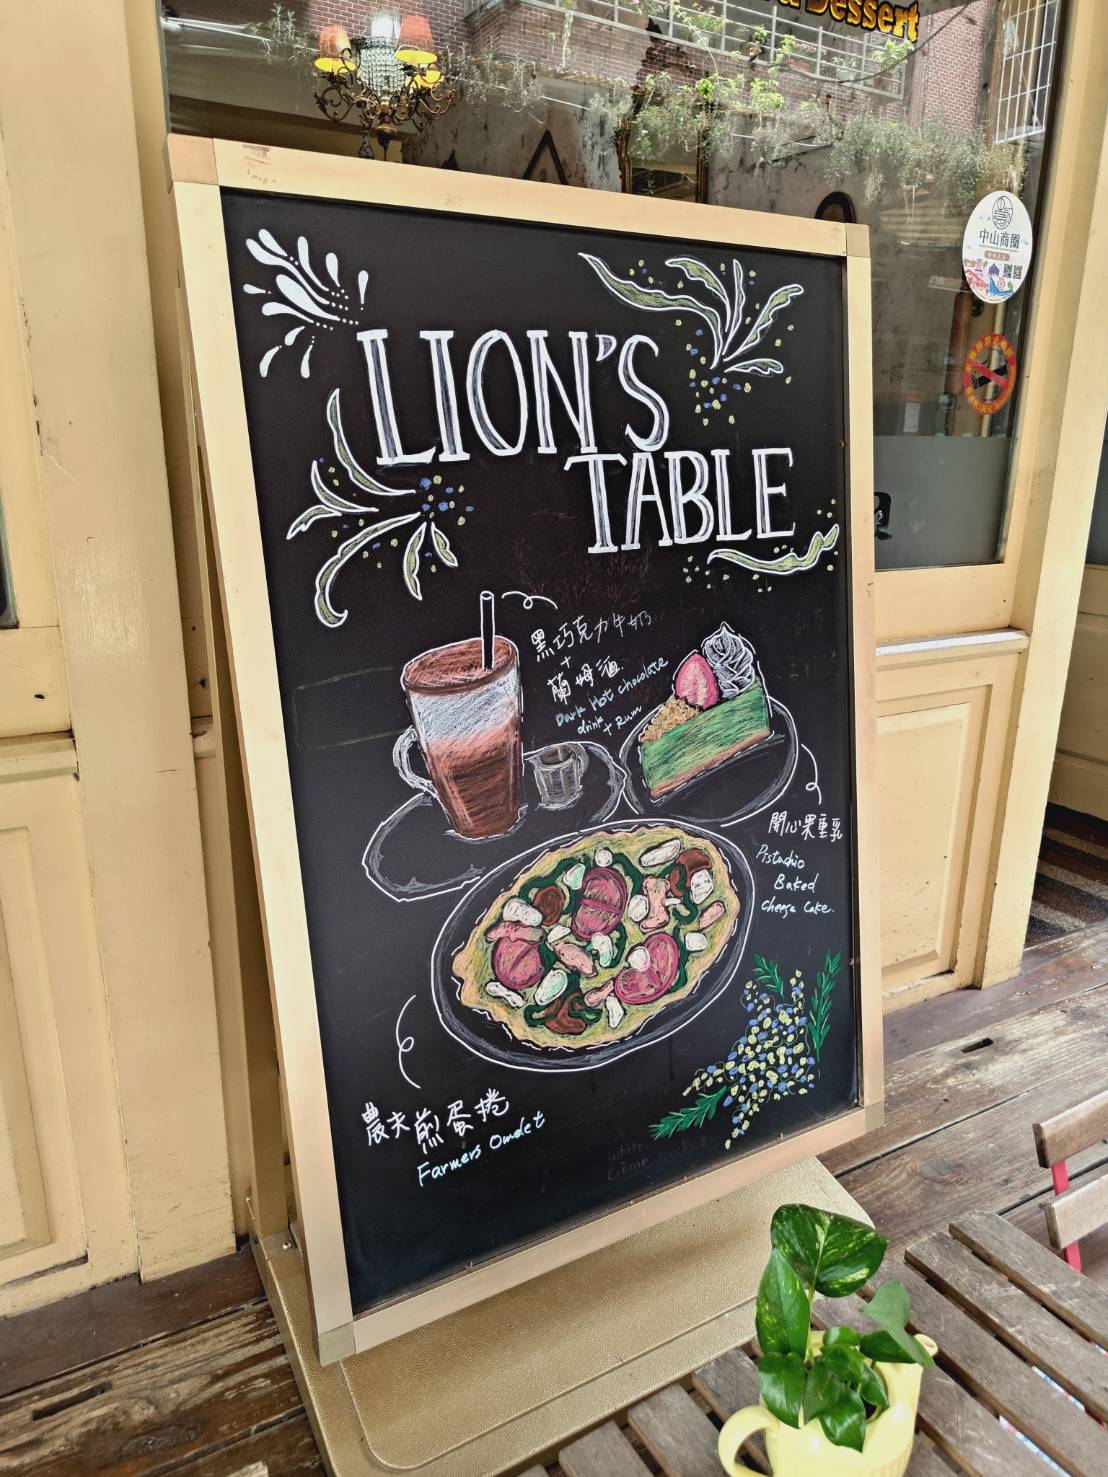 Dessert
中山商圈
LION'S
TABLE
黑巧克力牛奶
+
蘭姆酒
Dark Hot chocolate
drink + Rum
開心果重乳
Pistachio
Baked
Cheese Cake.
農夫煎蛋捲
Farmers Omelet